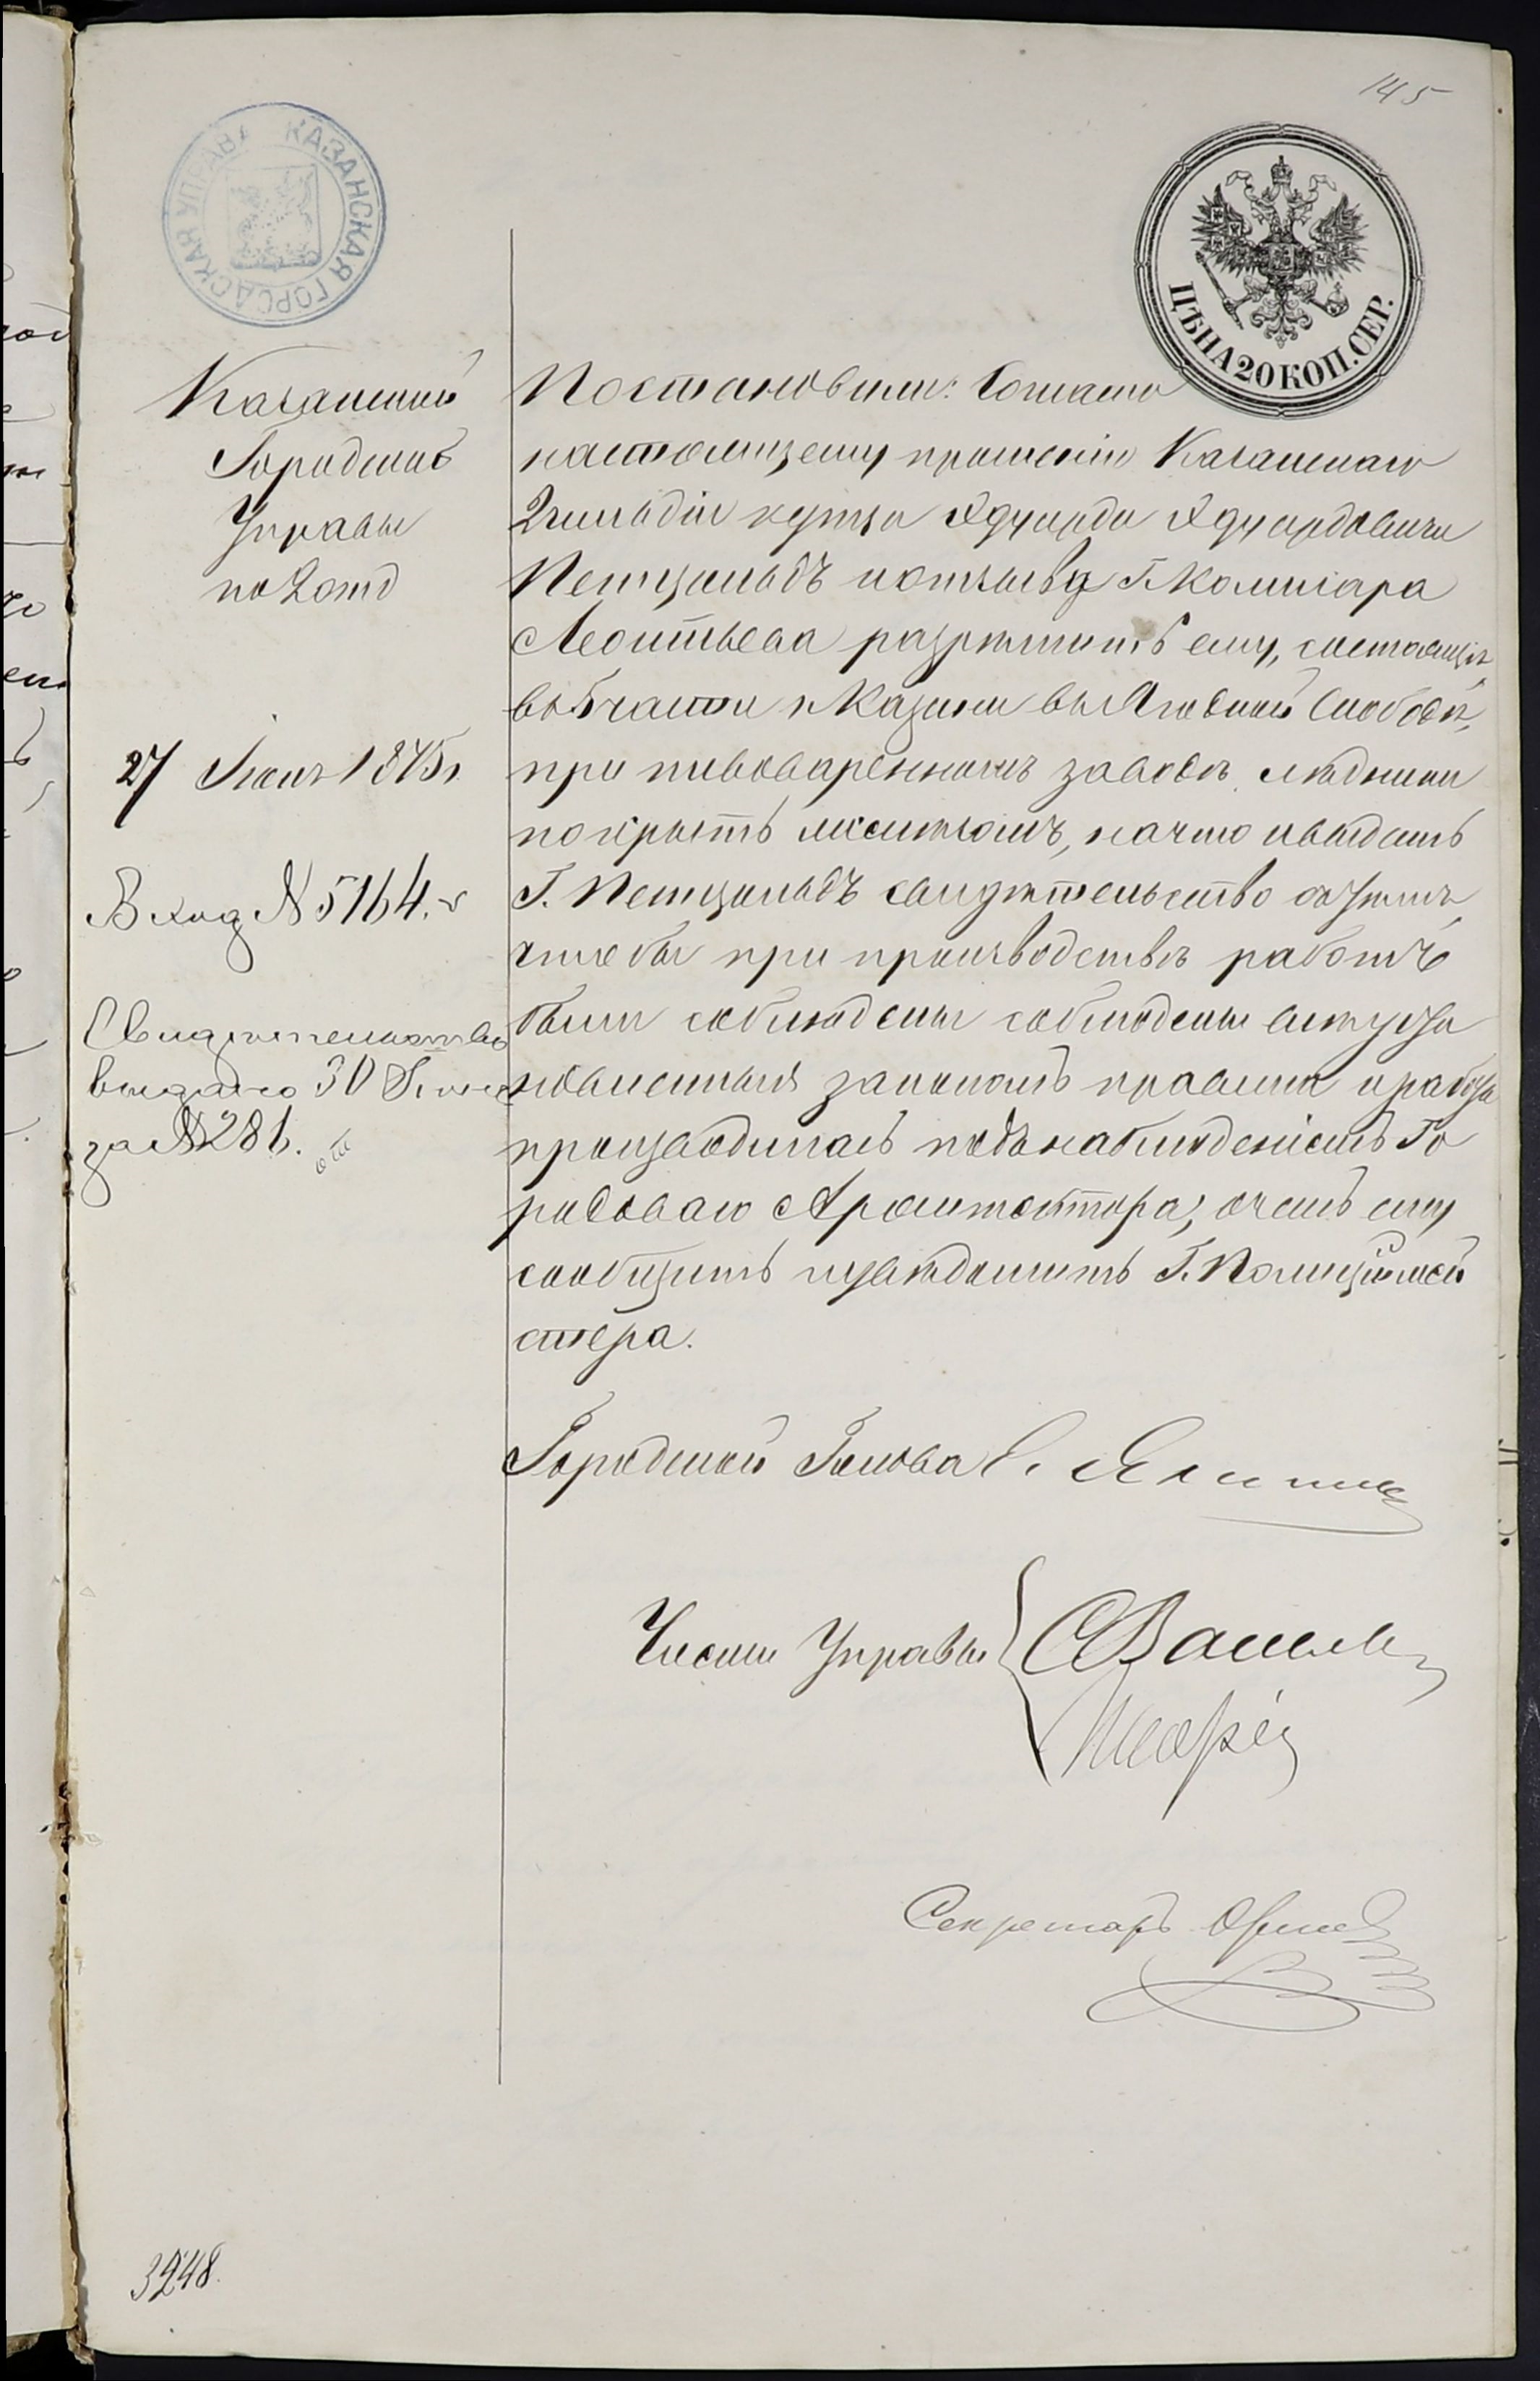 145
КАЗАНСКАЯ ГОРОДСКАЯ УПРАВА
ЦѢНА 20 КОП. СЕР.
Казанской
Городской
Управы
по 2 отд
27 Іюня 1875 г.
Вход № 5164.
Свидѣтельство
выдано 30 Іюня
за № 281.
Постановили: Согласно
настоящему прошенію Казанскаго
2 гильдіи купца Эдуарда Эдуардовича
Петцольдъ и отзыва Г. Комисара
Леонтьева разрѣшить ему, состоящіе
въ 5 части г. Казани въ Ягодной Слободѣ,
при пивоваренномъ заводѣ ледники
покрыть желѣзомъ, на что и выдать
Г. Петцольдъ свидѣтельство съ тѣмъ,
чтобы при производствѣ работъ
были соблюдены соблюдены
закономъ правила и работа
производилась подъ наблюденіемъ Го
родоваго Архитектора, о чемъ ему
сообщить и увѣдомить Г. Полиціймей
стера.
Городской Голова Е.
Члены Управы
Секретарь
3248.